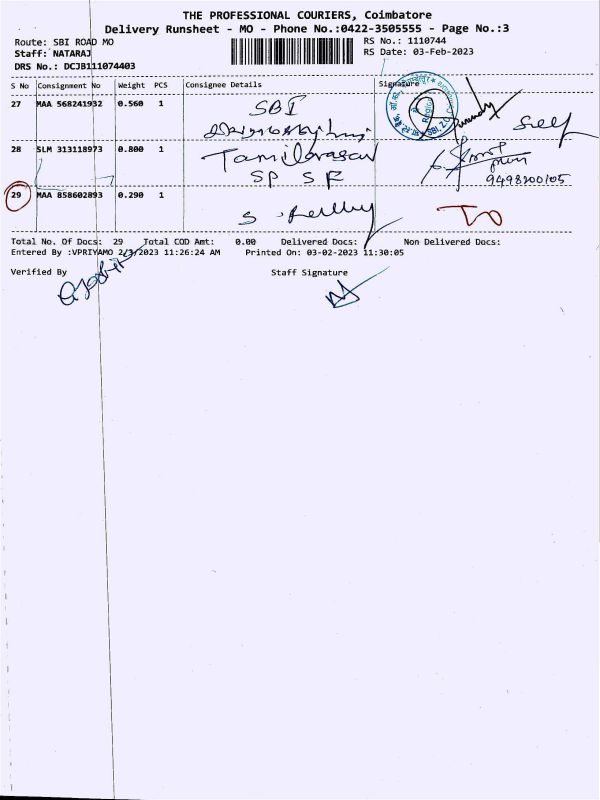 THE PROFESSIONAL COURIERS, Coimbatore
Delivery Runsheet - MO - Phone No.:0422-3505555 - Page No.:3
Route: SBI ROAD MO
RS No.: 1110744
Staff: NATARAJ
RS Date: 03-Feb-2023
DRS No.: DCJB111074403
S No Consignment No Weight PCS Consignee Details Signature
27 MAA 568241932 0.560 1 SBI
28 SLM 313118973 0.800 1 Tamilarasan
SP SF
9498200105
29 MAA 858602893 0.290 1 S
Total No. Of Docs: 29 Total COD Amt: 0.00 Delivered Docs: Non Delivered Docs:
Entered By :VPRIYAMO 2/3/2023 11:26:24 AM Printed On: 03-02-2023 11:30:05
Verified By Staff Signature